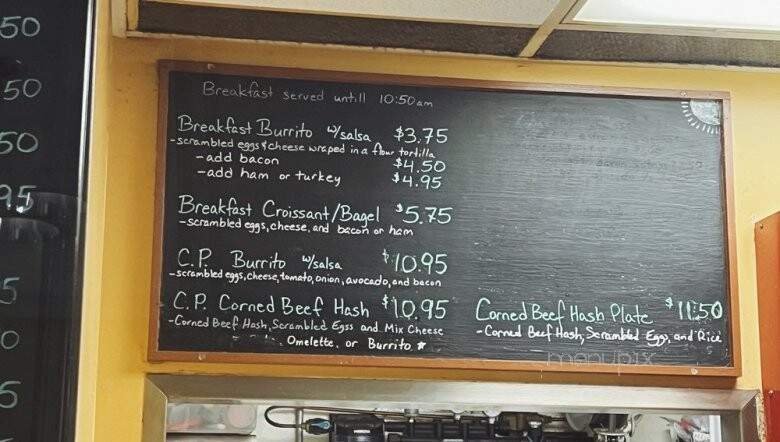 50
50
50
95
5
0
5
Breakfast served untill 10:50am
Breakfast Burrito w/salsa $3.75
-scrambled eggs & cheese wraped in a flour tortilla
-add bacon $4.50
-add ham or turkey $4.95
Breakfast Croissant/Bagel $5.75
-scrambled eggs, cheese, and bacon or ham
C.P. Burrito w/salsa $10.95
-scrambled eggs, cheese, tomato, onion, avocado, and bacon
C.P. Corned Beef Hash $10.95
-Corned Beef Hash, Scrambled Eggs and Mix Cheese
Omelette, or Burrito ★
Corned Beef Hash Plate $11.50
-Corned Beef Hash, Scrambled Eggs, and Rice
menupix